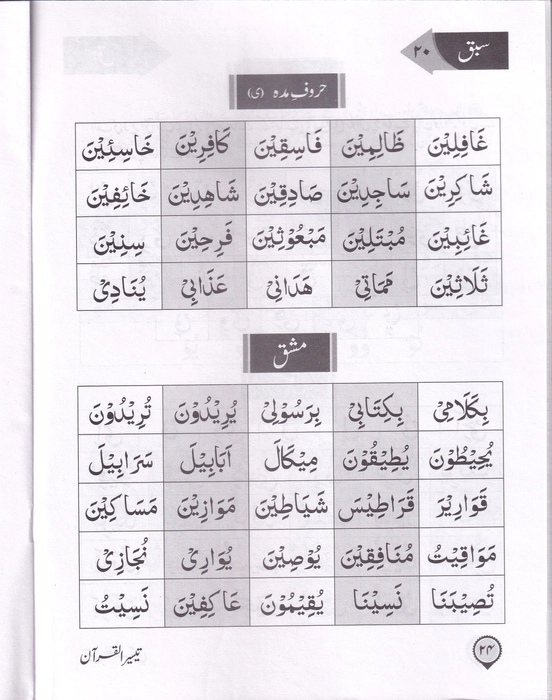 سبق ۲۰
حروفِ مدہ (ی)
غَافِلِیْنَ ظَالِمِیْنَ فَاسِقِیْنَ كَافِرِیْنَ خَاسِئِیْنَ
شَاكِرِیْنَ سَاجِدِیْنَ صَادِقِیْنَ شَاهِدِیْنَ خَائِفِیْنَ
غَائِبِیْنَ مُبْتَلِیْنَ مَبْعُوْثِیْنَ فَرِحِیْنَ سِنِیْنَ
ثَلَاثِیْنَ مَمَاتِیْ هَدَانِیْ عَذَابِیْ یُنَادِیْ
مشق
بِكَلَامِیْ بِكِتَابِیْ بِرَسُوْلِیْ یُرِیْدُوْنَ تُرِیْدُوْنَ
یُحِیْطُوْنَ یُطِیْقُوْنَ مِیْكَالَ اَبَابِیْلَ سَرَابِیْلَ
قَوَارِیْرَ قَرَاطِیْسَ شَیَاطِیْنَ مَوَازِیْنَ مَسَاكِیْنَ
مَوَاقِیْتُ مُنَافِقِیْنَ یُوْصِیْنَ یُوَارِیْ نُجَازِیْ
تُصِیْبَنَا نَسِیْنَا یُقِیْمُوْنَ عَاكِفِیْنَ نَسِیْتُ
۲۴ تیسیر القرآن